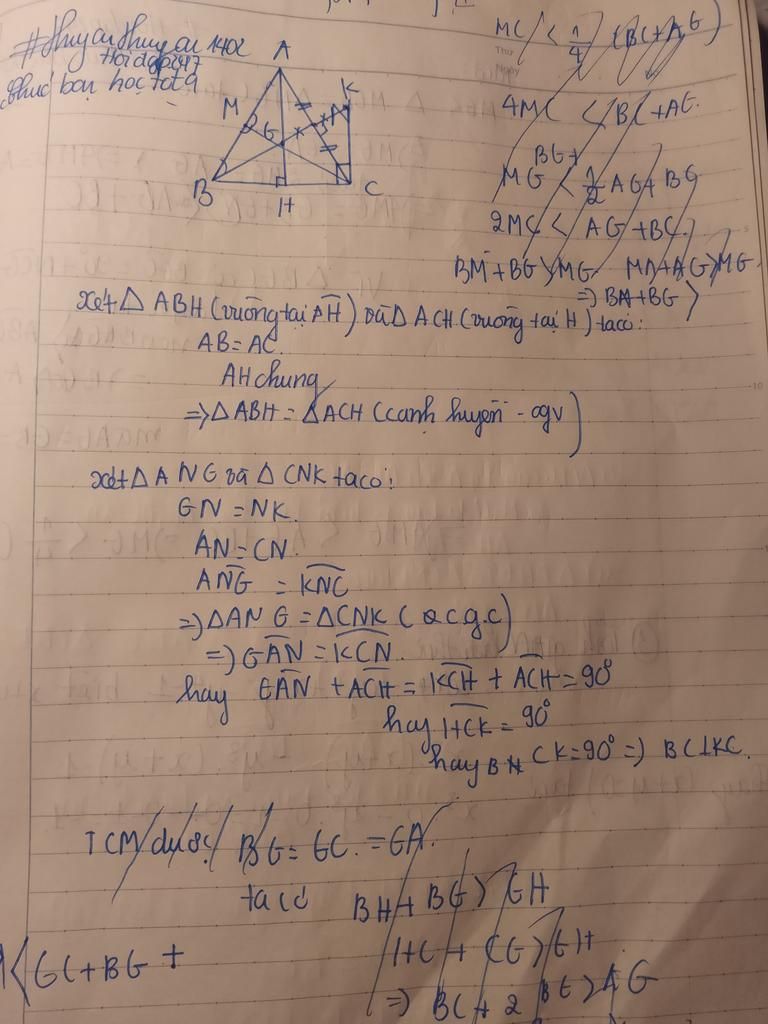 #thuyanthuyan1402
Hoidap247
Chúc bạn học tốt
MC < 1/4 (BC+AG)
4MC < BC+AG.
BG+
MG < 1/2 AG+BG
2MC < AG+BC.
BM+BG>MG. MA+AG>MG
=> BA+BG >
A
K
M
G
B
H
C
xét Δ ABH (vuông tại H) và Δ ACH (vuông tại H) ta có:
AB=AC.
AH chung
=> Δ ABH = Δ ACH (cạnh huyền - cgv)
xét Δ ANG và Δ CNK ta có:
GN = NK.
AN = CN.
ANG = KNC
=> ΔANG = ΔCNK (c.g.c)
=> GAN = KCN.
hay GAN + ACH = KCH + ACH = 90°
hay HCK = 90°
hay B CK=90° => BC⊥KC.
TCM được BG = GC = GA.
ta có BH + BG > GH
HC + CG > GH
=> BC + 2 BG > AG
< GC+BG +